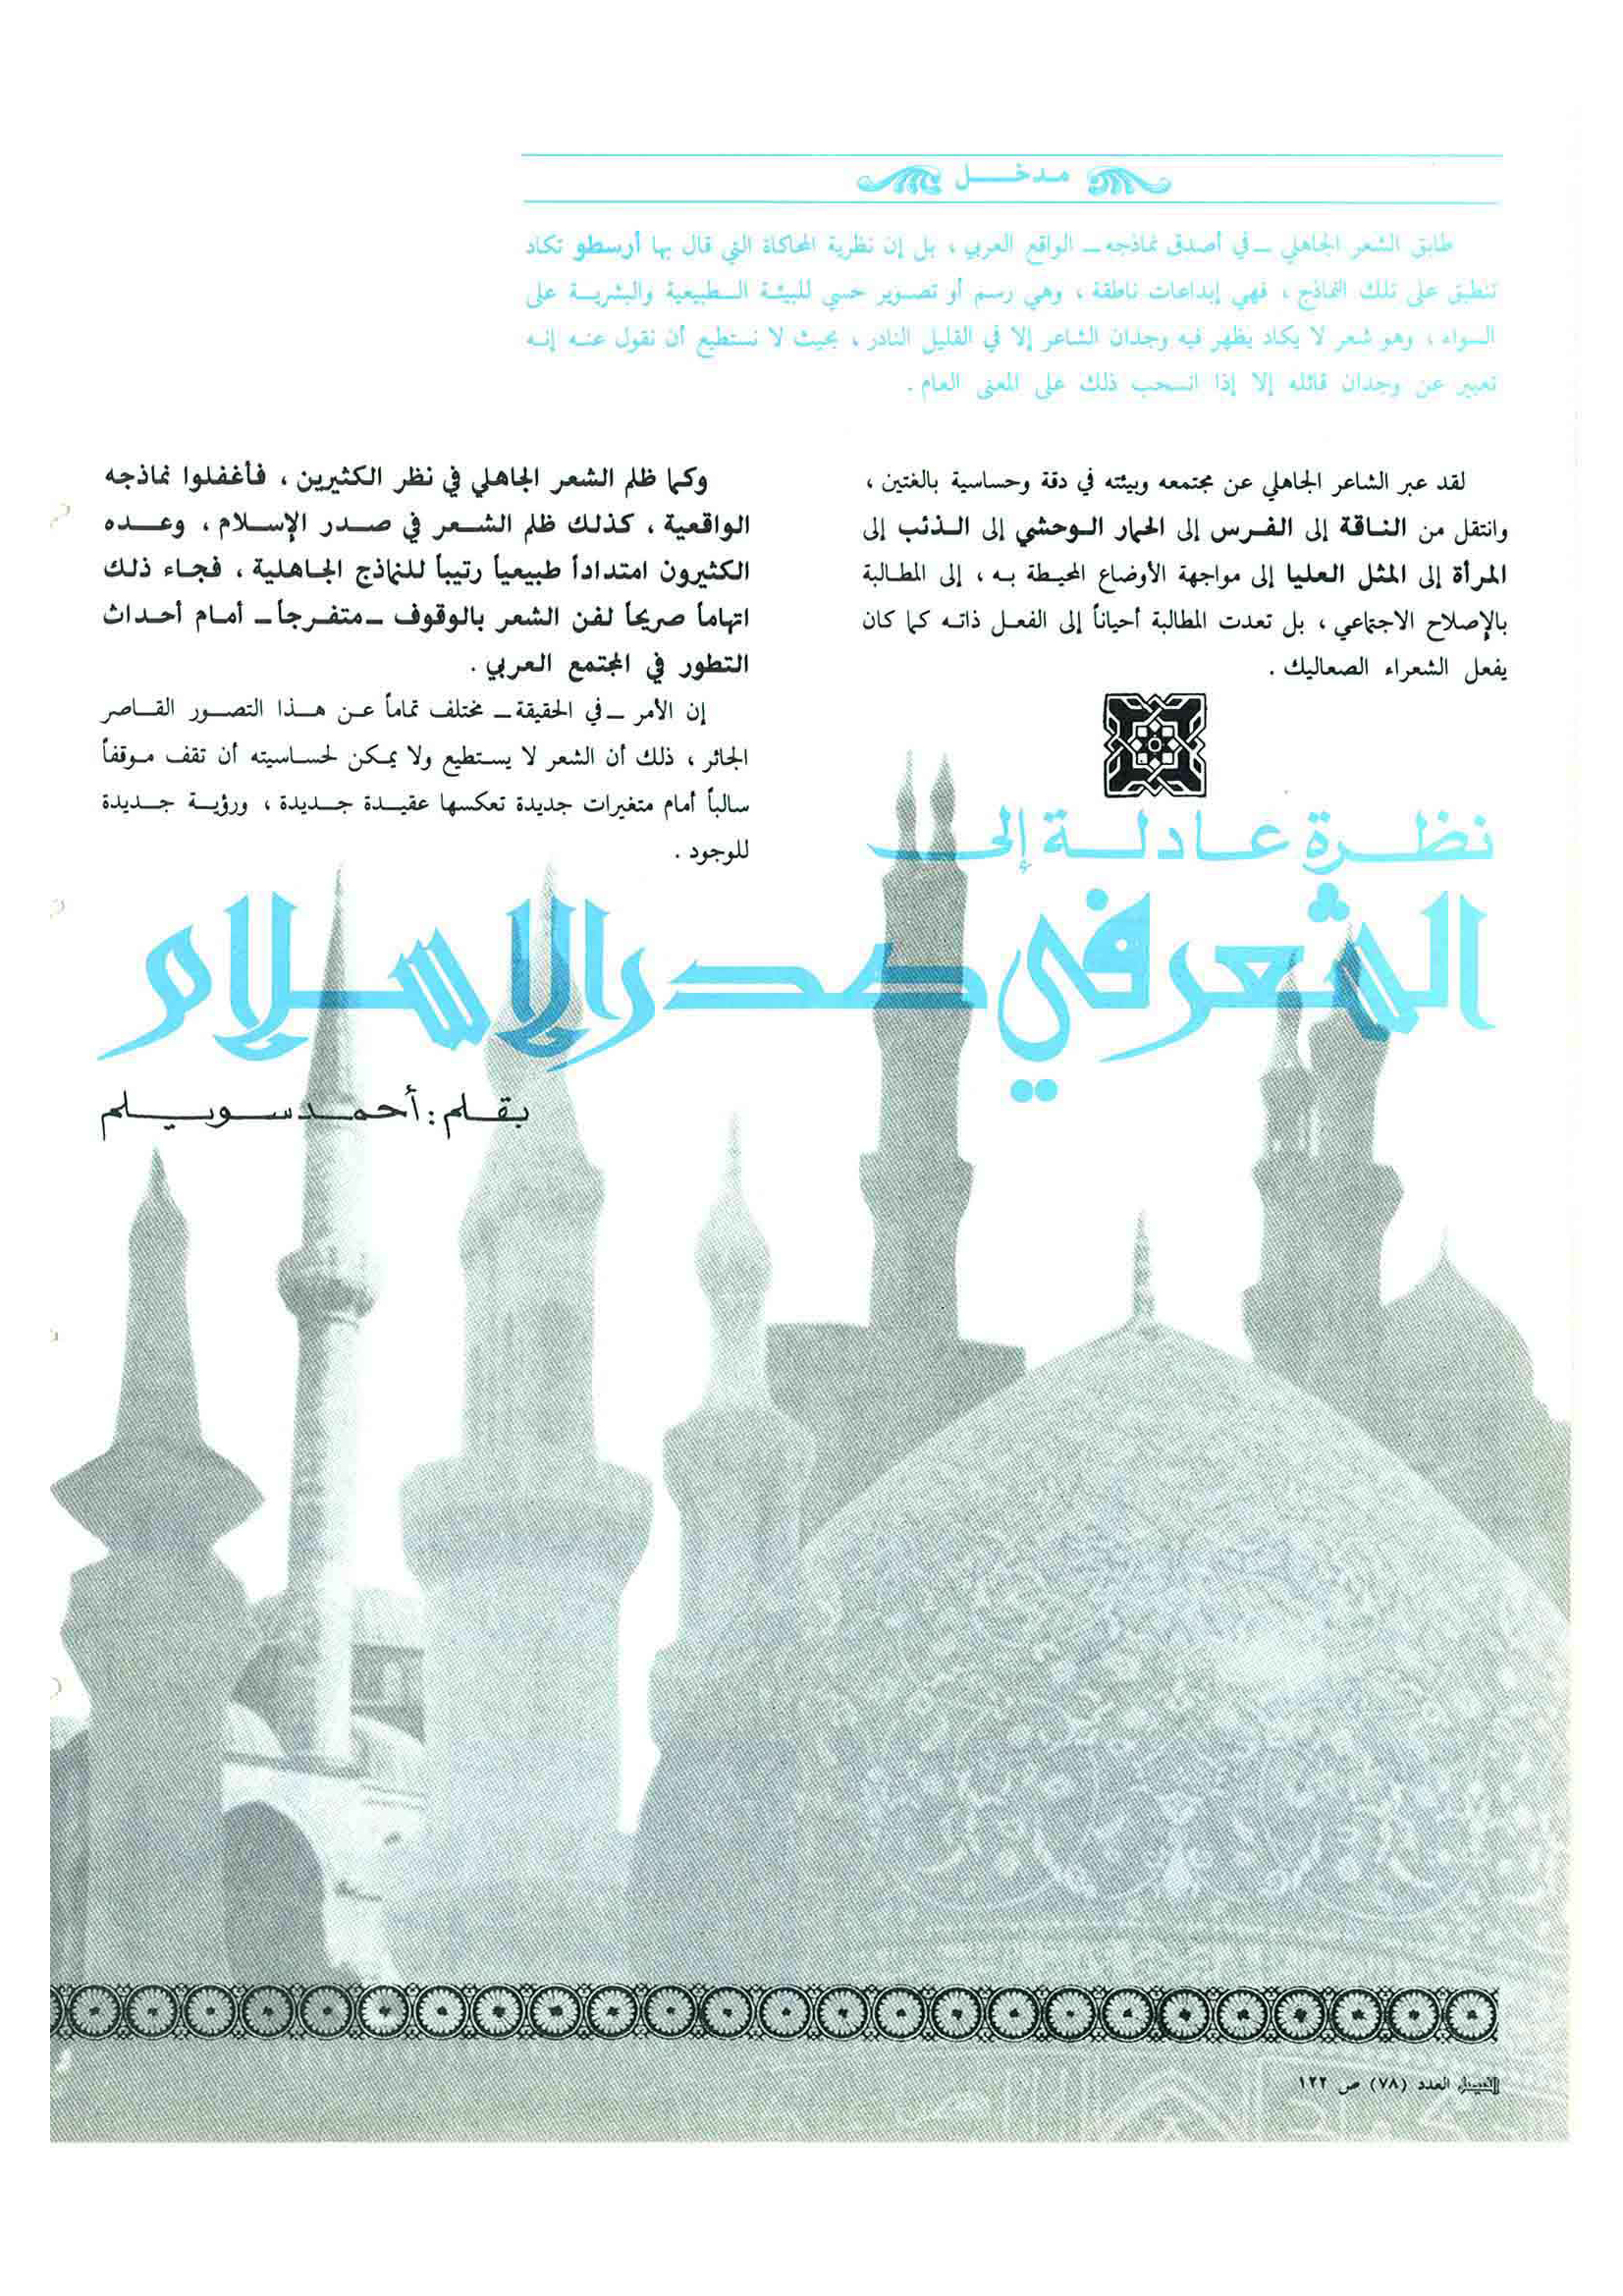 مدخل
طابق الشعر الجاهلي ــ في أصدق نماذجه ــ الواقع العربي ، بل إن نظرية المحاكاة التي قال بها أرسطو تكاد
تنطبق على تلك النماذج ، فهي إبداعات ناطقة ، وهي رسم أو تصوير حسي للبيئة الطبيعية والبشرية على
السواء ، وهو شعر لا يكاد يظهر فيه وجدان الشاعر إلا في القليل النادر ، بحيث لا نستطيع أن نقول عنه إنه
تعبير عن وجدان قائله إلا إذا انسحب ذلك على المعنى العام .
لقد عبر الشاعر الجاهلي عن مجتمعه وبيئته في دقة وحساسية بالغتين ،
وانتقل من الناقة إلى الفرس إلى الحمار الوحشي إلى الذئب إلى
المرأة إلى المثل العليا إلى مواجهة الأوضاع المحيطة به ، إلى المطالبة
بالإصلاح الاجتماعي ، بل تعدت المطالبة أحياناً إلى الفعل ذاته كما كان
يفعل الشعراء الصعاليك .
وكما ظلم الشعر الجاهلي في نظر الكثيرين ، فأغفلوا نماذجه
الواقعية ، كذلك ظلم الشعر في صدر الإسلام ، وعده
الكثيرون امتداداً طبيعياً رتيباً للنماذج الجاهلية ، فجاء ذلك
اتهاماً صريحاً لفن الشعر بالوقوف ــ متفرجاً ــ أمام أحداث
التطور في المجتمع العربي .
إن الأمر ــ في الحقيقة ــ مختلف تماماً عن هذا التصور القاصر
الجائر ، ذلك أن الشعر لا يستطيع ولا يمكن لحساسيته أن تقف موقفاً
سالباً أمام متغيرات جديدة تعكسها عقيدة جديدة ، ورؤية جديدة
للوجود .
نظرة عادلة إلى
الشعر في صدر الإسلام
بقلم : أحمد سويلم
الفيصل العدد (٧٨) ص ١٢٢